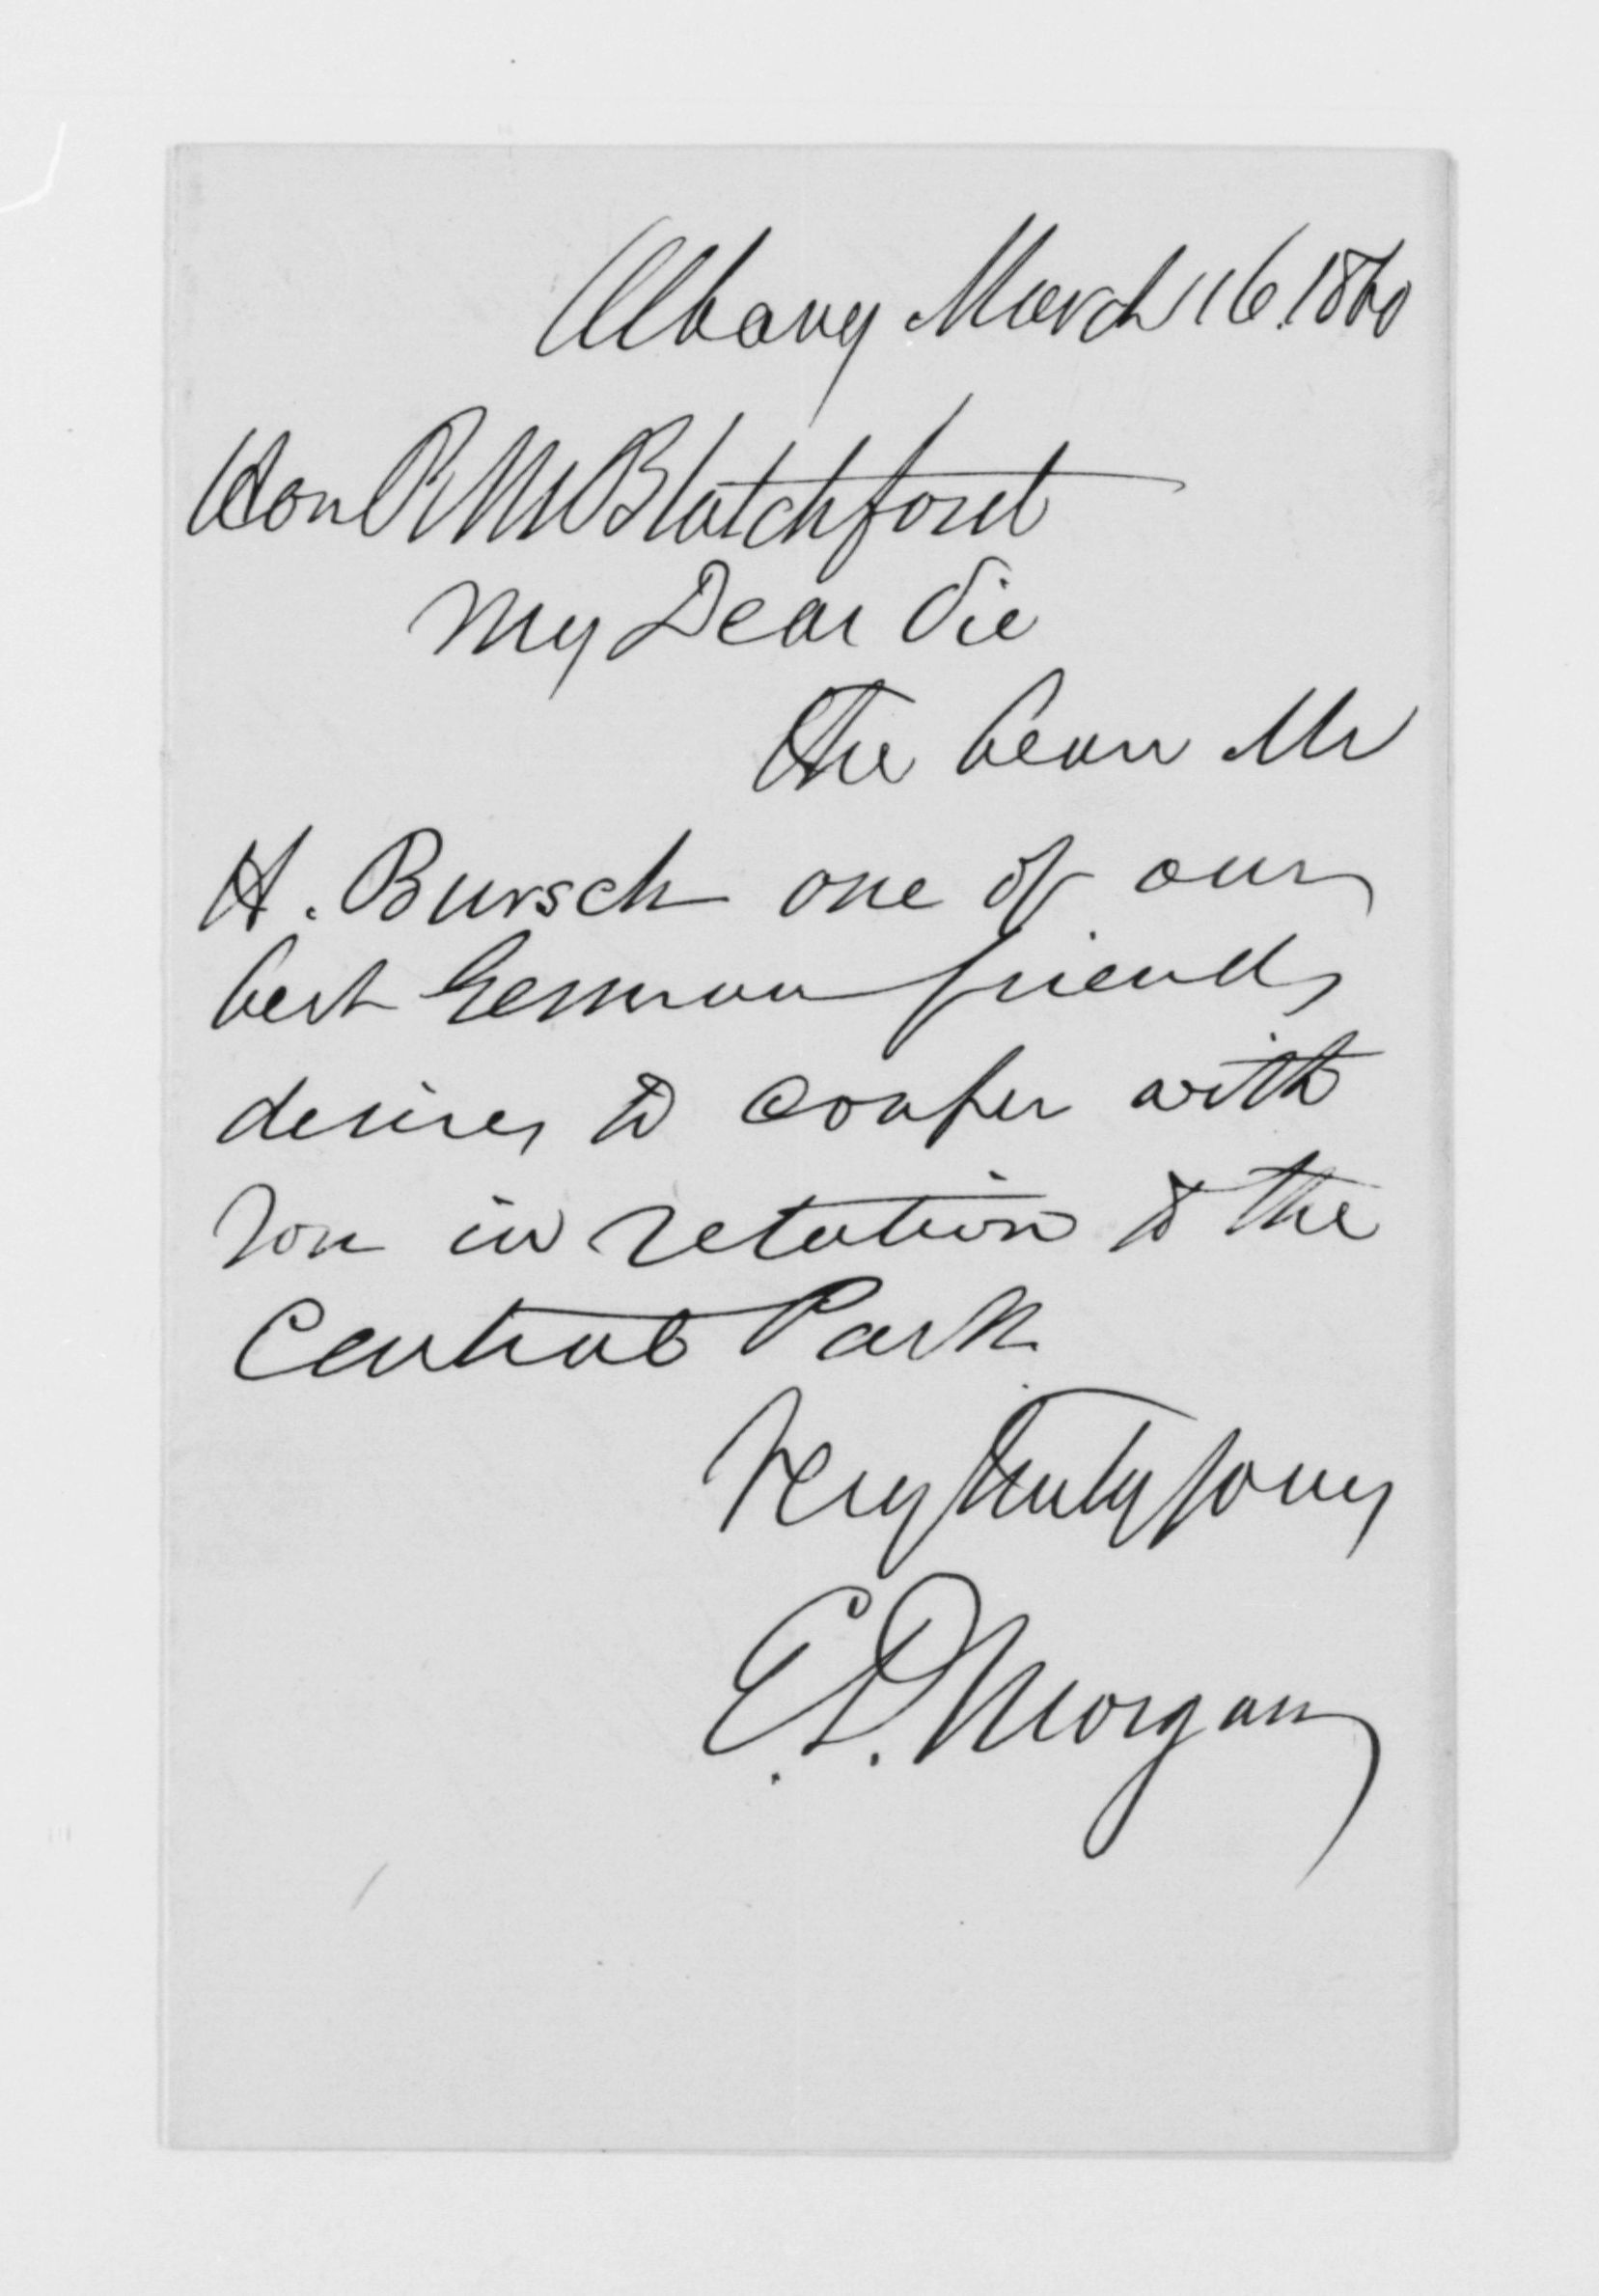 Albany March 16. 1860
Hon R M Blatchford
My Dear Sir
The bearer Mr
H. Bursch one of our
best German friends
desires to confer with
you in relation to the
Central Park
Very truly yours
E. D. Morgan